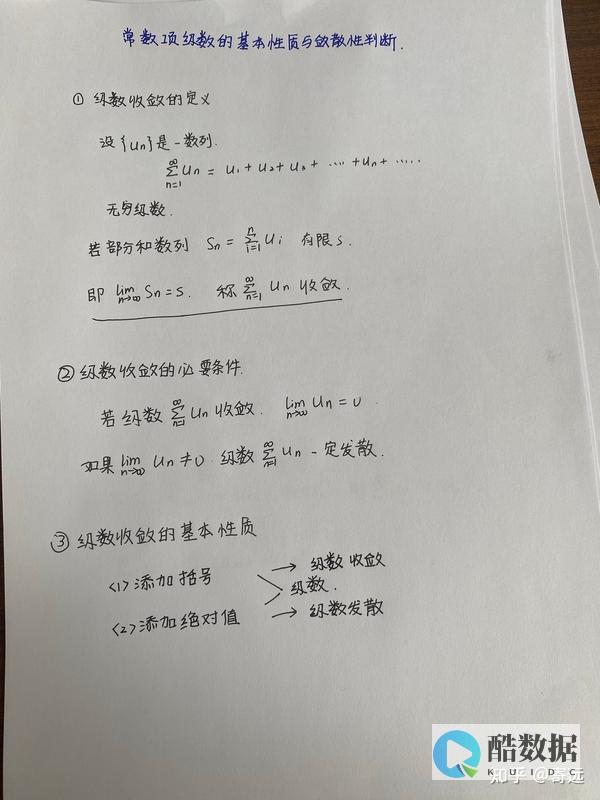 常数项级数的基本性质与敛散性判断.
① 级数收敛的定义
设{un}是一数列.
∞∑n=1 un = u1 + u2 + u3 + ···· + un + ·····
无穷级数.
若部分和数列 Sn = n∑i=1 ui 有限s.
即 lim n→∞ Sn = s. 称 ∞∑n=1 un 收敛.
② 级数收敛的必要条件.
若级数 ∞∑n=1 un 收敛. lim n→∞ un = 0
如果 lim n→∞ un ≠ 0 级数 ∞∑n=1 un 一定发散.
③ 级数收敛的基本性质
<1> 添加括号 → 级数收敛
级数.
<2> 添加绝对值 → 级数发散
酷数据
KUIDC
知乎 @寄远